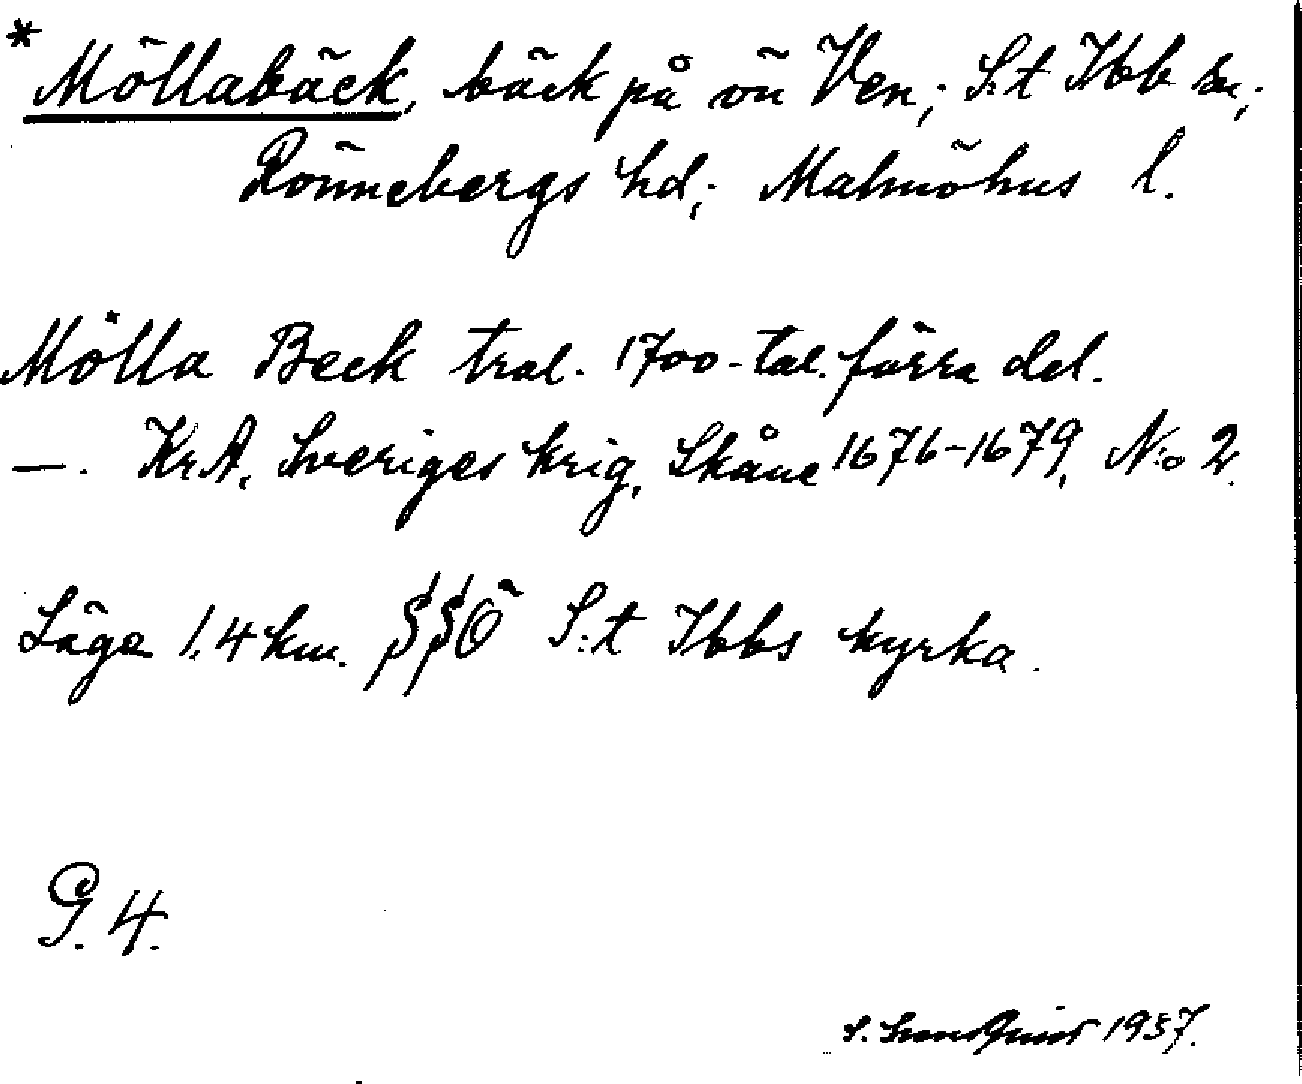 * Möllabäck, bäck på ön Ven; S:t Ibb sn;
Rönnebergs hd; Malmöhus l.
Mölla Beck tral. 1700-tal. förra del.
—. KrA, Sveriges krig, Skåne 1676-1679, N:o 2.
Läge 1.4 km. SSÖ S:t Ibbs kyrka.
G. 4.
S. Sundquist 1937.